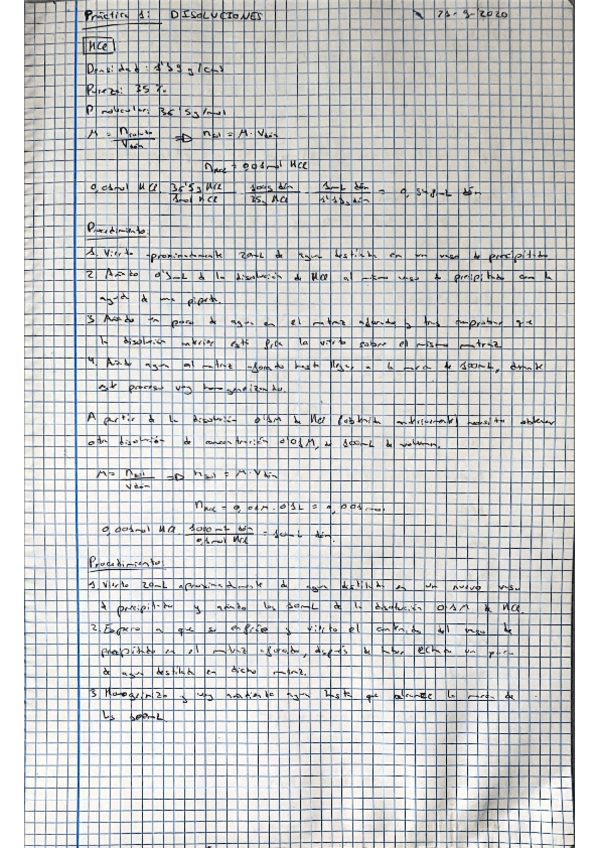 Práctica 1: DISOLUCIONES 21-9-2020
HCl
Densidad: 1'19 g/cm3
Pureza: 35%
P molecular: 36'5 g/mol
M = n soluto / V disn => n sol = M · V disn
n HCl = 0,01 mol HCl
0,01 mol HCl · 36'5g HCl / 1mol HCl · 100g disn / 35g HCl · 1mL disn / 1'19g disn = mL disn
Procedimiento
1. Vierto aproximadamente 20mL de agua destilada en un vaso de precipitado
2. Añado de la disolución de HCl al mismo vaso de precipitado con la
ayuda de una pipeta.
3. Añado un poco de agua en el matraz aforado y tras comprobar que
la disolución anterior está fría la vierto sobre el mismo matraz
4. Añado agua al matraz aforado hasta llegar a la marca de 100mL, durante
este proceso voy homogeneizando.
A partir de la disolución 0'1M de HCl (obtenida anteriormente) necesito obtener
otra disolución de concentración 0'01M, de 100mL de volumen.
M = n sol / V disn => n sol = M · V disn
n HCl = 0,01M · 0'1L = 0,001mol
0,001mol HCl · 1000mL disn / 0,1mol HCl = 10mL disn.
Procedimiento
1. Vierto 20mL aproximadamente de agua destilada en un nuevo vaso
de precipitado y añado los 10mL de la disolución 0'1M de HCl.
2. Espero a que se enfríe y vierto el contenido del vaso de
precipitado en el matraz aforado, después de haber echado un poco
de agua destilada en dicho matraz.
3. y voy añadiendo agua hasta que alcance la marca de
los 100mL